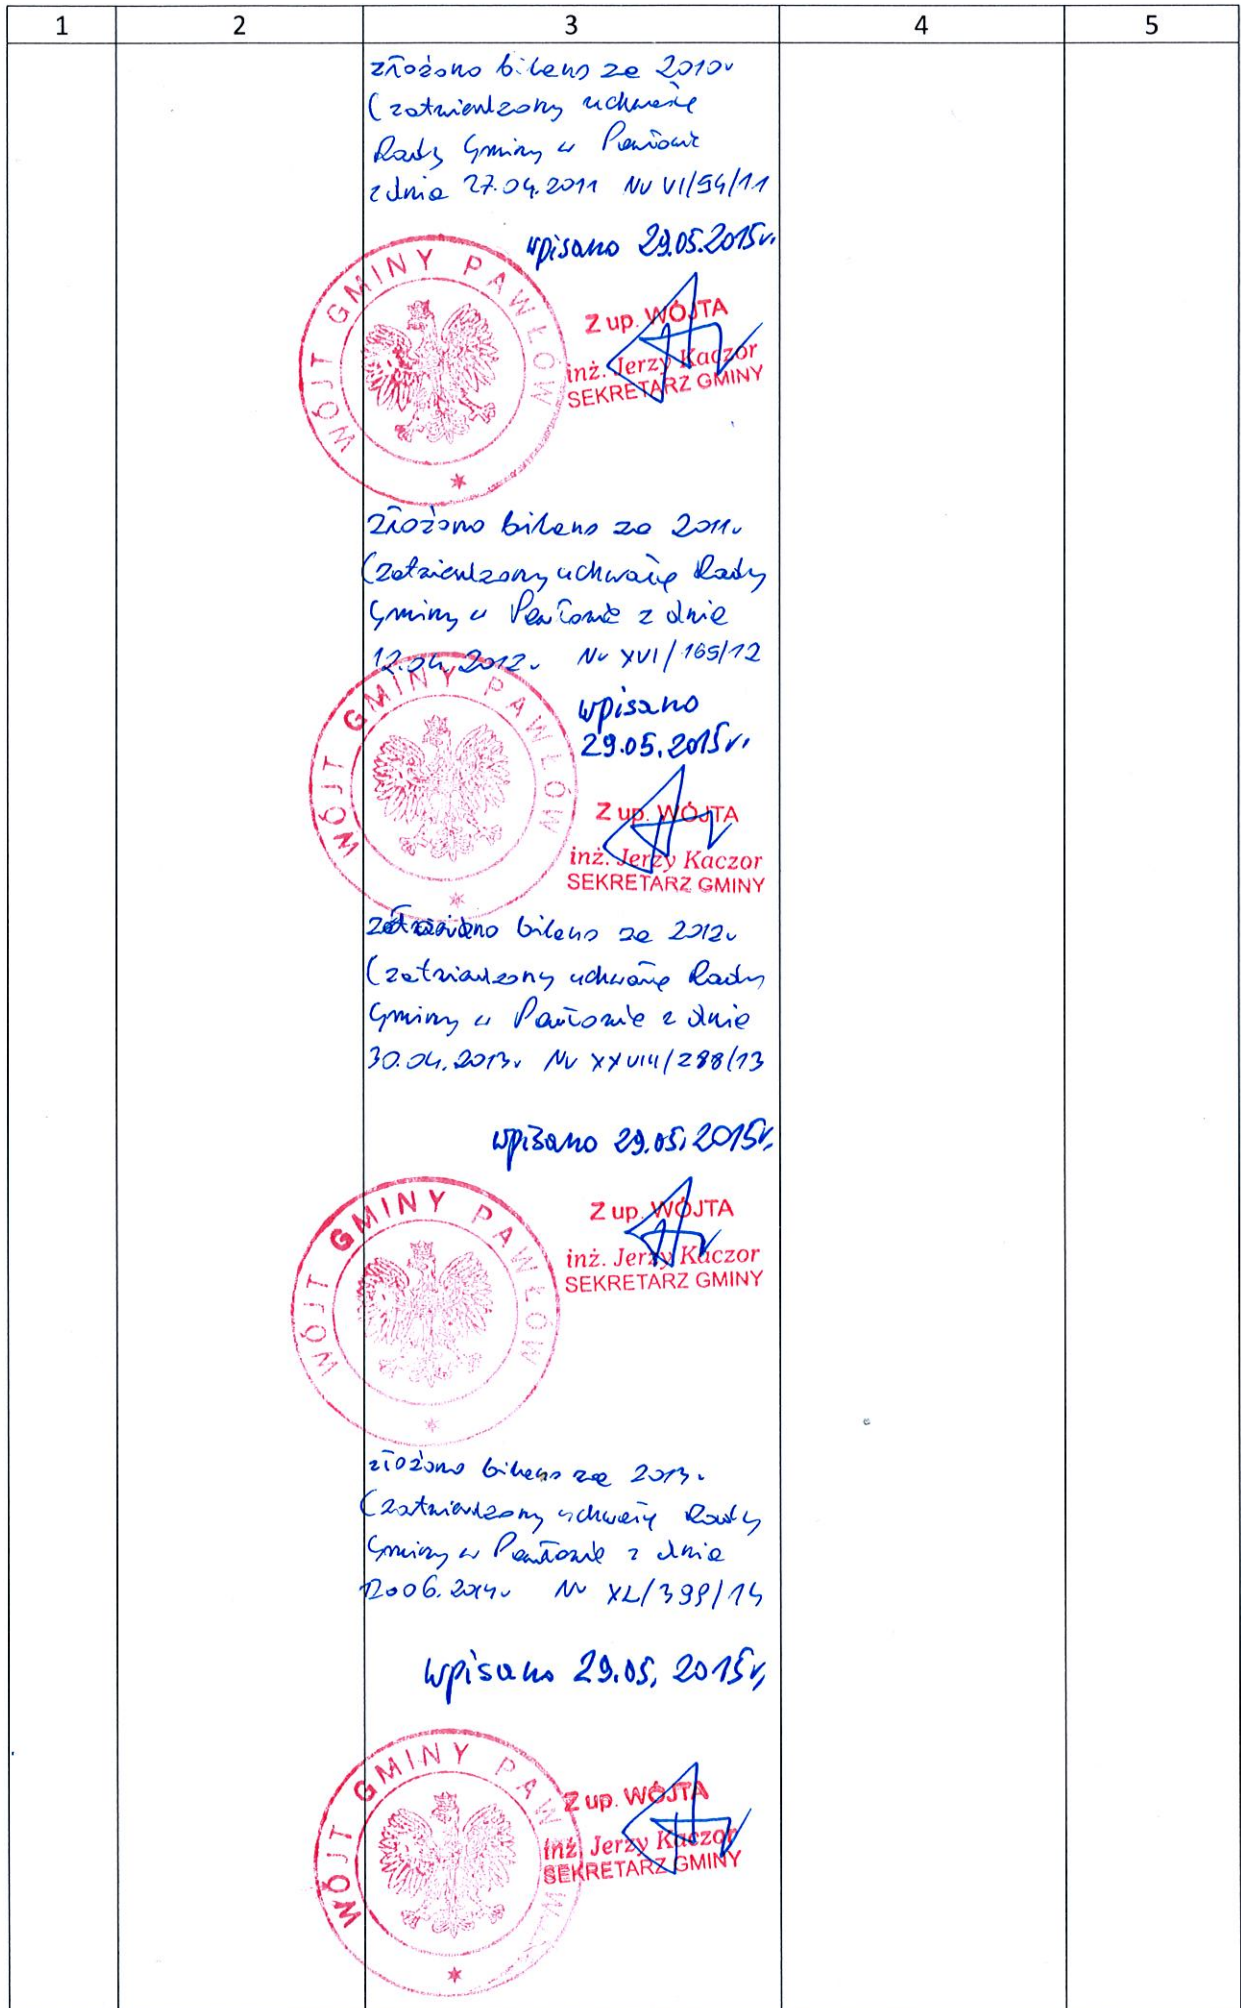 1 2 3 4 5
złożono bilans za 2010r
(zatwierdzony uchwałą
Rady Gminy w Pawłowie
z dnia 27.04.2011 Nr VI/54/11
wpisano 29.05.2015r.
WÓJT GMINY PAWŁÓW
Z up. WÓJTA
inż. Jerzy Kaczor
SEKRETARZ GMINY
złożono bilans za 2011r
(zatwierdzony uchwałą Rady
Gminy w Pawłowie z dnia
12.04.2012r Nr XVI/165/12
wpisano
29.05.2015r.
WÓJT GMINY PAWŁÓW
Z up. WÓJTA
inż. Jerzy Kaczor
SEKRETARZ GMINY
bilans za 2012r
(zatwierdzony uchwałą Rady
Gminy w Pawłowie z dnia
30.04.2013r Nr XXVIII/288/13
wpisano 29.05.2015r.
WÓJT GMINY PAWŁÓW
Z up. WÓJTA
inż. Jerzy Kaczor
SEKRETARZ GMINY
złożono bilans za 2013r
(zatwierdzony uchwałą Rady
Gminy w Pawłowie z dnia
Nr XL/399/14
wpisano 29.05.2015r.
WÓJT GMINY PAWŁÓW
Z up. WÓJTA
inż. Jerzy Kaczor
SEKRETARZ GMINY